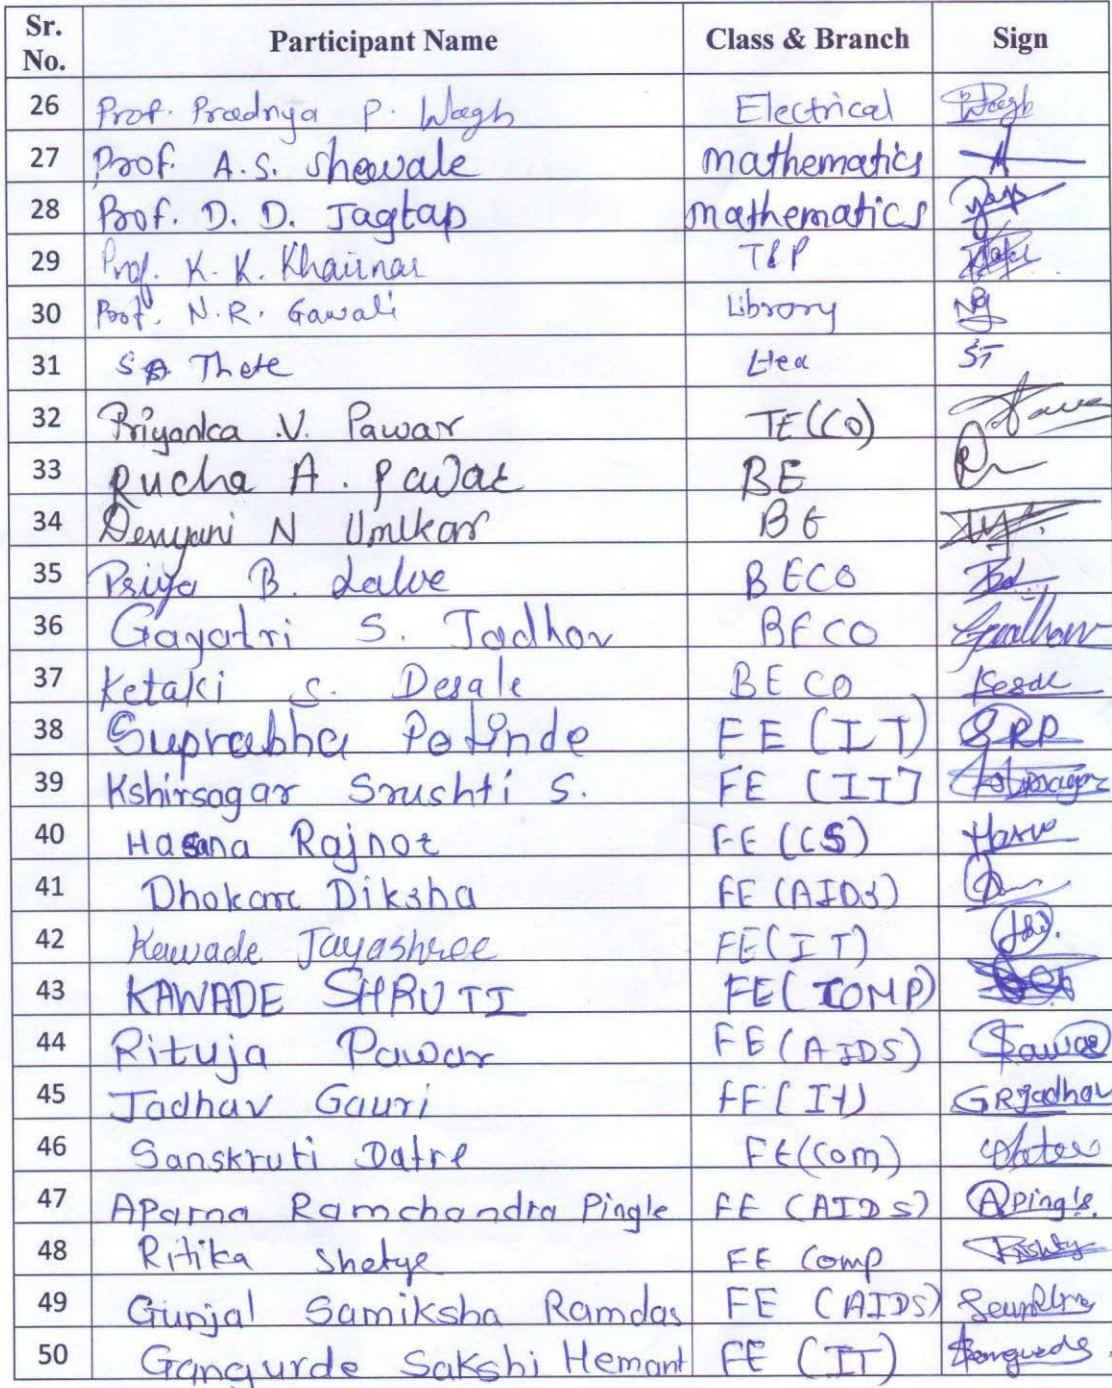 Sr. No. Participant Name Class & Branch Sign
26 Prof. Pradnya P. Wagh Electrical Wagh
27 Prof. A.S. Shewale mathematics
28 Prof. D. D. Jagtap mathematics
29 Prof. K. K. Khairnar T&P
30 Prof. N.R. Gawali Library NG
31 Thete ST
32 Priyanka .V. Pawar TE(CO)
33 Rucha A. Pawar BE
34 Denyani N Umikar BE
35 Priya B. Lalve BECO
36 Gayatri S. Jadhav BECO
37 Ketaki S. Desale BECO
38 Suprabha Potinde FE (IT) SRP
39 Kshirsagar Srushti S. FE (IT)
40 Hasana Rajnot FE (CS)
41 Dhokare Diksha FE (AIDS)
42 Kawade Jayashree FE(IT)
43 KAWADE SHRUTI FE(COMP)
44 Rituja Pawar FE(AIDS) Pawar
45 Jadhav Gauri FE(IT) GRJadhav
46 Sanskruti Datre FE(Com)
47 APama Ramchandra Pingle FE (AIDS) APingle.
48 Ritika Shetye FE Comp
49 Gunjal Samiksha Ramdas FE (AIDS)
50 Gangurde Sakshi Hemant FE (IT) Sangurde